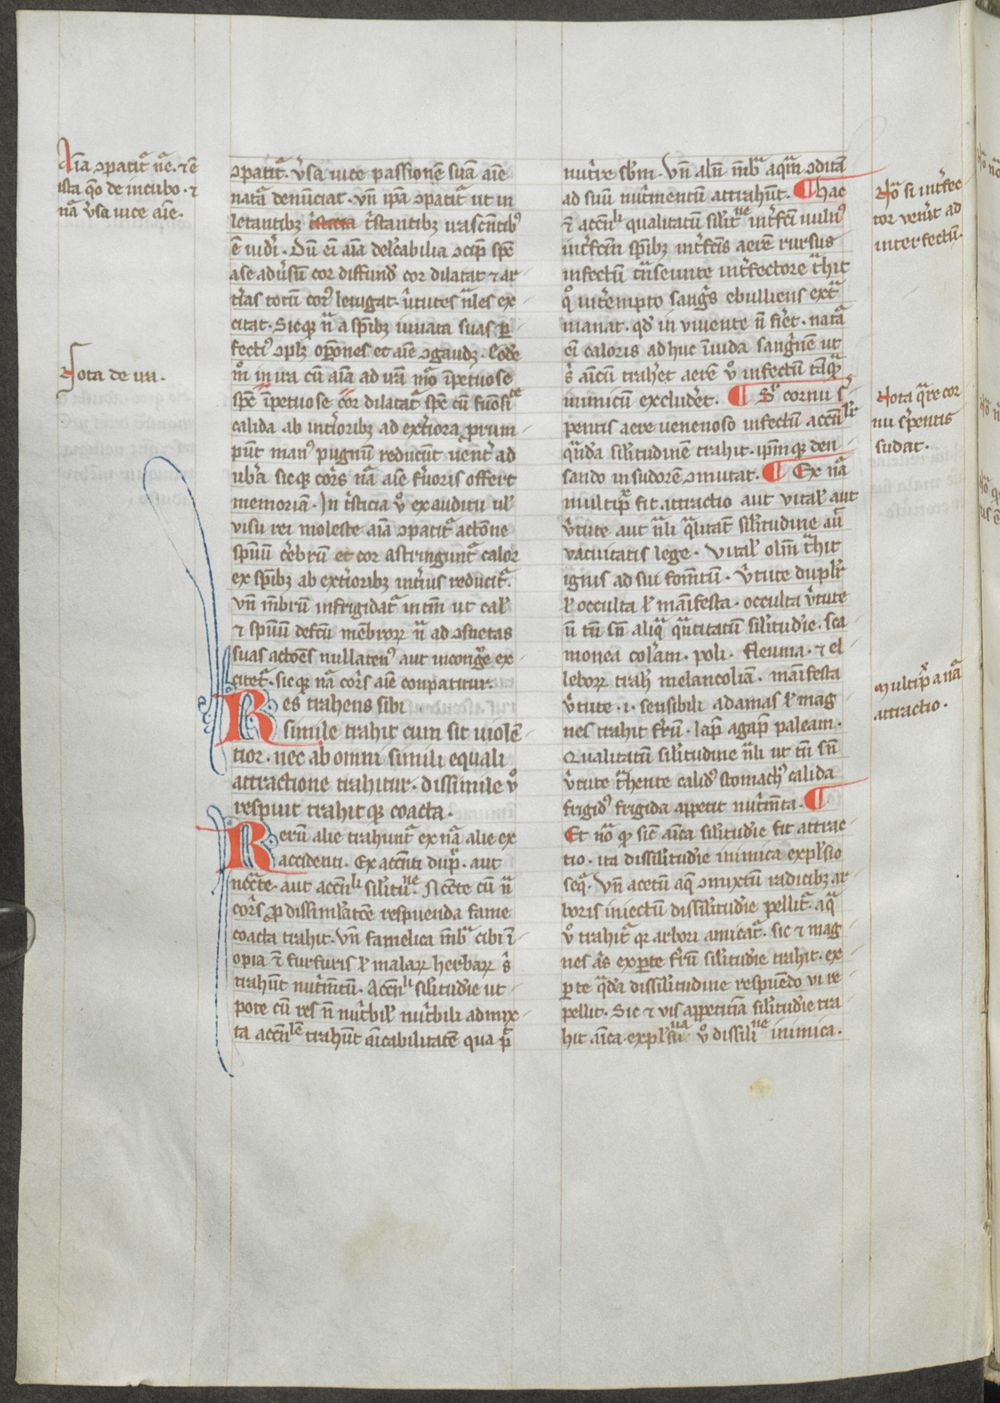 Aīa ɔpatit᷑ nͣe. ⁊ē
ista qͦ de incubo. ⁊
nͣa v͛sa uice aīe.
Nota de ira.
ɔpatit᷑. v͛sa uice passionē suā aīe
natͣa denūciat. vn̄ ip̄a ɔpatit᷑ ut in
letantibꝫ t͛stantibꝫ irascētibꝰ
ē uid͛i. Dū ei aīa delc̄abilia ɔcip̄ spē
ase adūsū cor diffund͛ cor dilatat ⁊ ar
t͛ias totū corꝰ letugat. v͛tutes nͣles ex
citat. Sicqꝫ nͣ a sp̄ibꝫ iuuata suas ꝑ
fectiꝰ ɔplꝫ op̄ones et aīe ɔgaudꝫ. Eodē
mͦ in ira cū aīa ad irā mͣo īpetuose
spē īpetuose cor dilatat᷑ spē cū fuōsitͤe
calida ab int͛ioribꝫ ad ext͛iora prorum
pūt manꝰ pugnū reducūt uent͛ ad
ub͛a sicqꝫ corꝑs nͣa aīe furoris offert
memoriā. In tͥsticia vͦ ex auditu uł
visu rei moleste aīa ɔpatit᷑ actōne
spūū cͤrebrū et cor astringunt᷑ calor
ex sp̄ibꝫ ab ext͛ioribꝫ int͛ius reducit᷑.
vn̄ mēbrū infrigidat᷑ intm̄ ut cał
⁊ spūū defcū mēbroꝝ nͣ ad ɔsuetas
suas actōes nullatenꝰ aut incongͦe ex
citet᷑. sicqꝫ nͣa corꝑs aīe conpatitur.
Res trahens sibi
simile trahit cum sit uiolē
tior. nec ab omni simili equali
attractione trahitur. dissimile vͦ
respuit trahitqꝫ coacta.
Rerū alie trahunt᷑ ex nͣa alie ex
accidenti. Ex accn̄ti dupͬ. aut
nēcͣte. aut accn̄ˡⁱ siłituͫᵉ. Ncēte cū nͣ
corꝑs ꝓ dissimiłtatē respuenda fame
coacta trahit. vn̄ famelica mēbͣ cibi ī
opia ⁊ furfuris ł malaꝝ herbaꝝ s̄
trahūt nut͛mtū. Accn̄ˡⁱ siłitudīe ut
pote cū res nͣ nutͥbil nutͥbili admix
ta accn̄ˡᵉ trahūt aīcabilitatē qua pͬ
nutͥre sbm̄. vn̄ aln̄ mēbͣ aqͣm ɔditā
ad suū nut͛mentū attrahūt. ¶ hac
⁊ accn̄ˡⁱ qualitatū siłitⁿᵉ int͛fc̄i uulnꝰ
int͛fcm̄ sp̄ibꝫ int͛fcīs aerē rursus
infectū tͣnseunte int͛fectore tͣhit
qͦ int͛empto sanguͥs ebulliens extͣ
manat. qd͛ in viuente nͣ fi͛et. natͣa
ei caloris adhuc īuida sangͥnē ut
s̄ aīcū trah͛et aerē vͦ infectū tāqͣꝫ
inimicū exclud͛et. ¶ Sͦ cornu s͛
pentis aere uenenoso infectū accn̄ˡꝰ
qͣda siłitudine trahit. ipm̄qꝫ den
sando in sudorē ɔmutat. ¶ Ex nͣa
multipͬ fit attractio aut vitał aut
v͛tute aut nͣli qͣlitat᷑ siłitudine aū
vacuitatis lege. vitał olm̄ tͣhit
ignis ad sui fom̄tū. v͛tute dupłr
ł occulta ł māifesta. occulta v͛tute
nͣ tm̄ sn̄ aliqͣ qͣntitatū siłitudīe. sca
monea col͛am. poli. fleuma. ⁊ el
leboꝝ trahꝫ melancoliā. māifesta
v͛tute .i. sensibili adamas ł mag
nes trahit frū. lapͥ agapͥ paleam.
Qualitatū siłitudine nͣli ut tm̄ sn̄
v͛tute tͣhente calidꝰ stomachꝰ calida
frigidꝰ frigida appetit nut͛mta. ¶
Et nͦa qꝫ sic᷑ aīca siłitudīe fit attrac
tio. ita dissiłitudīe inimica expłsio
seqͣ. vn̄ acetū aqͣ ɔmixtū radicibꝫ ar
boris iniectū dissiłitudīe pellit᷑. aqͣ
vͦ trahit᷑ qꝛ arbori amicat᷑. sic ⁊ mag
nes aīs exꝑte frū siłitudīe trahit. ex
ꝑte qͣdā dissiłitudine respuēdo vi re
pellit. Sic ⁊ vis appetitīa siłitudīe tra
hit aīca expłsiuͣ vͦ dissiłiⁿᵉ inimica.
Nͦa si int͛fec
tor ven͛it ad
interfectū.
Nota qͣre cor
nu s͛pentis
sudat.
Multipͬ a nͣa
attractio.